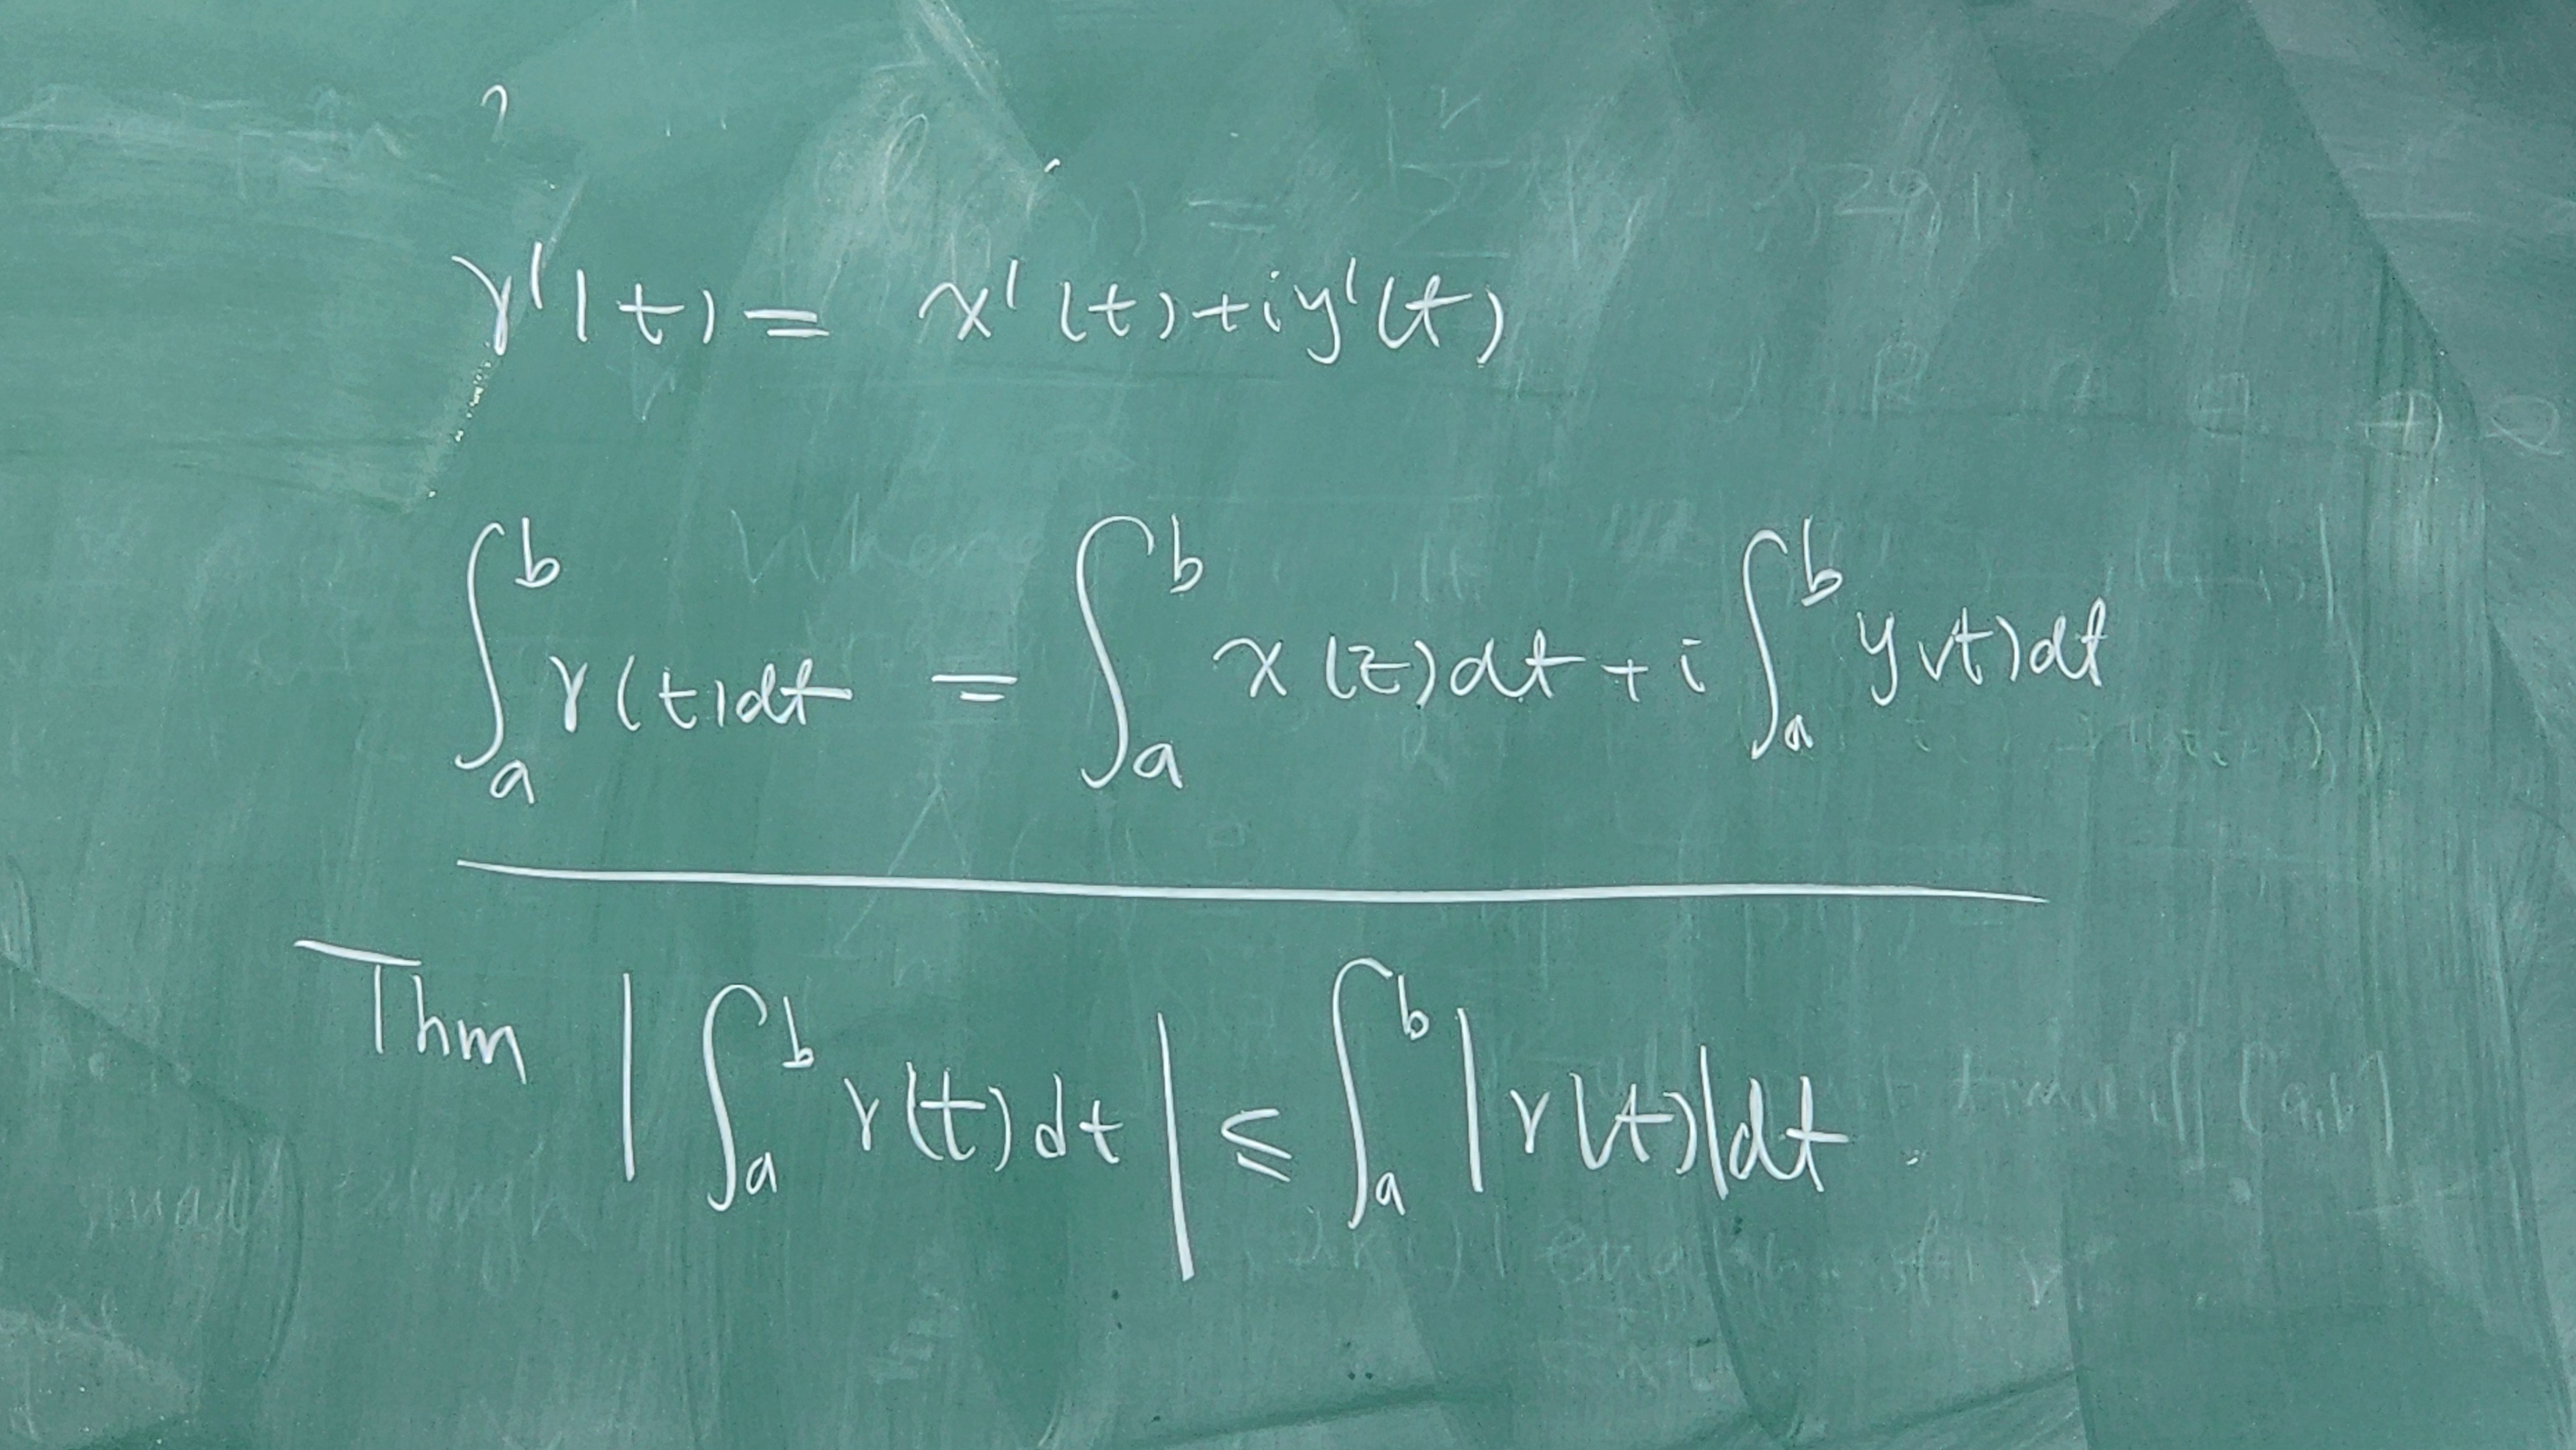 γ'(t) = x'(t)+iy'(t)
∫_a^b γ(t)dt = ∫_a^b x(t)dt + i ∫_a^b y(t)dt
Thm | ∫_a^b γ(t)dt | ≤ ∫_a^b |γ(t)|dt.